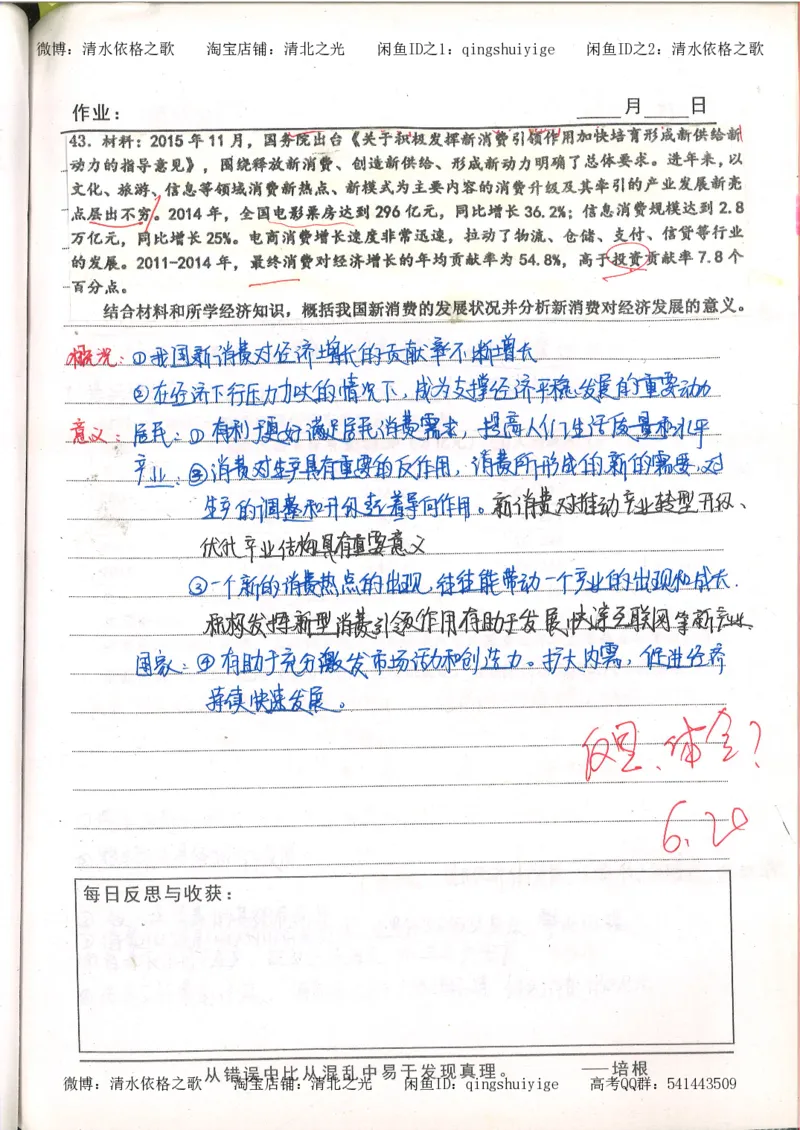 微博：清水依格之歌 淘宝店铺：清北之光 闲鱼ID之1：qingshuiyige 闲鱼ID之2：清水依格之歌
作业： 月 日
43．材料：2015年11月，国务院出台《关于积极发挥新消费引领作用加快培育形成新供给新
动力的指导意见》，围绕释放新消费、创造新供给、形成新动力明确了总体要求。近年来，以
文化、旅游、信息等领域消费新热点、新模式为主要内容的消费升级及其牵引的产业发展新亮
点层出不穷。2014年，全国电影票房达到296亿元，同比增长36.2%；信息消费规模达到2.8
万亿元，同比增长25%。电商消费增长速度非常迅速，拉动了物流、仓储、支付、信贷等行业
的发展。2011-2014年，最终消费对经济增长的年均贡献率为54.8%，高于投资贡献率7.8个
百分点。
结合材料和所学经济知识，概括我国新消费的发展状况并分析新消费对经济发展的意义。
概况：①我国新消费对经济增长的贡献率不断增长
②在经济下行压力加大的情况下，成为支撑经济平稳发展的重要动力
意义：居民：①有利于更好满足居民消费需求，提高人们生活质量和水平
产业：②消费对生产具有重要的反作用，消费所形成的新的需要，对
生产的调整和升级起着导向作用。新消费对推动产业转型升级、
优化产业结构具有重要意义
③一个新的消费热点的出现，往往能带动一个产业的出现和成长．
积极发挥新型消费引领作用有助于发展快递互联网等新产业．
国家：④有助于充分激发市场活力和创造力。扩大内需，促进经济
持续快速发展。
反思、体会？
6.20
每日反思与收获：
从错误中比从混乱中易于发现真理。 ——培根
微博：清水依格之歌 淘宝店铺：清北之光 闲鱼ID：qingshuiyige 高考QQ群：541443509